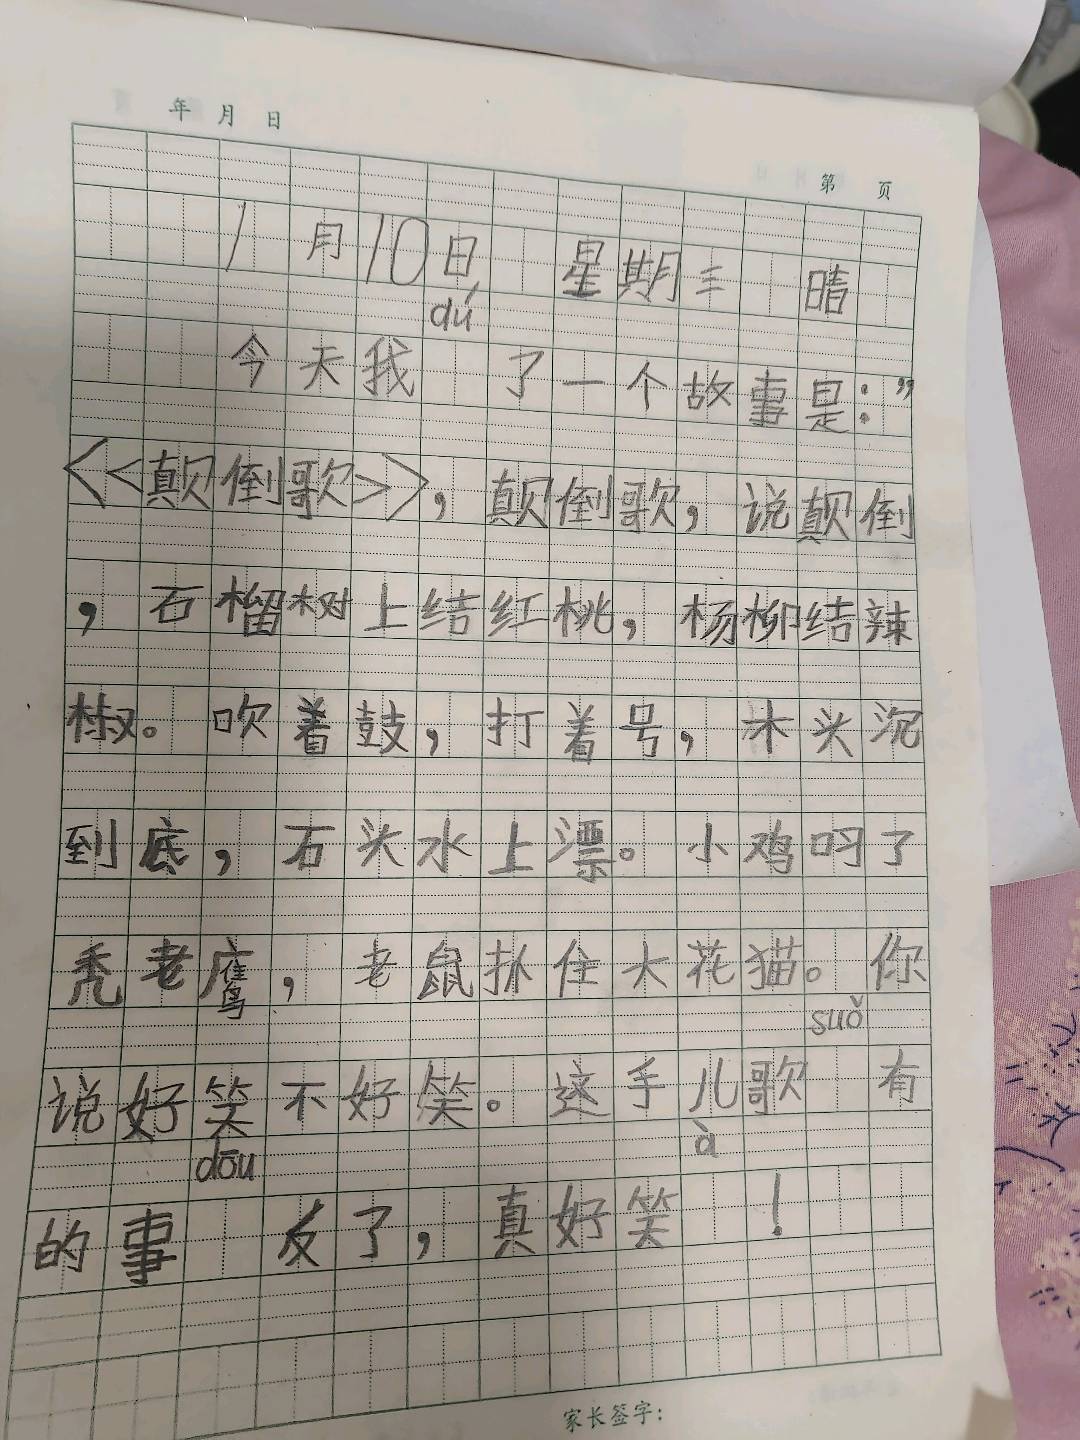 年 月 日
第 页
1月10日 星期三 晴
dú
今天我 了一个故事是：”
<<颠倒歌>>，颠倒歌，说颠倒
，石榴树上结红桃，杨柳结辣
椒。吹着鼓，打着号，木头沉
到底，石头水上漂。小鸡叼了
秃老鹰，老鼠抓住大花猫。你
suǒ
说好笑不好笑。这手儿歌 有
dōu à
的事 反了，真好笑 ！
家长签字：